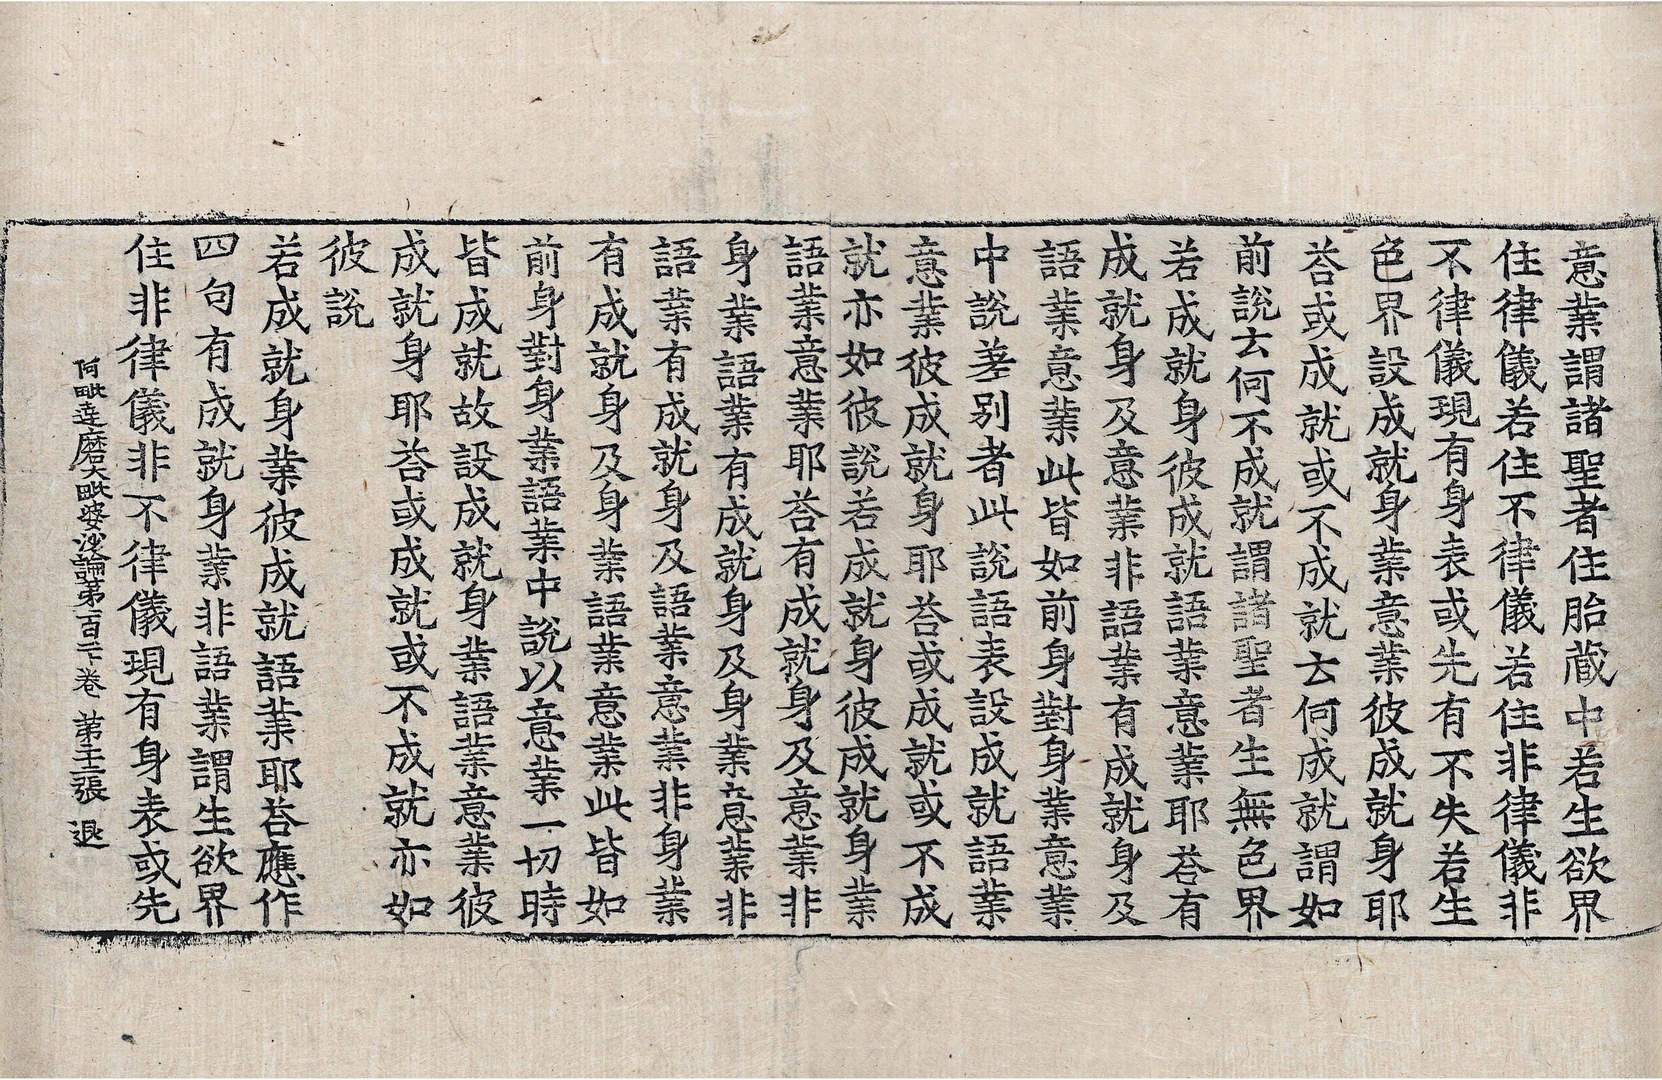 意業謂諸聖者住胎藏中若生欲界
住律儀若住不律儀若住非律儀非
不律儀現有身表或先有不失若生
色界設成就身業意業彼成就身耶
荅或成就或不成就云何成就謂如
前說云何不成就謂諸聖者生無色界
若成就身彼成就語業意業耶荅有
成就身及意業非語業有成就身及
語業意業此皆如前身對身業意業
中說差別者此說語表設成就語業
意業彼成就身耶荅或成就或不成
就亦如彼說若成就身彼成就身業
語業意業耶荅有成就身及意業非
身業語業有成就身及身業意業非
語業有成就身及語業意業非身業
有成就身及身業語業意業此皆如
前身對身業語業中說以意業一切時
皆成就故設成就身業語業意業彼
成就身耶荅或成就或不成就亦如
彼說
若成就身業彼成就語業耶荅應作
四句有成就身業非語業謂生欲界
住非律儀非不律儀現有身表或先
阿毗達磨大毗婆沙論第百二十卷 第張 退